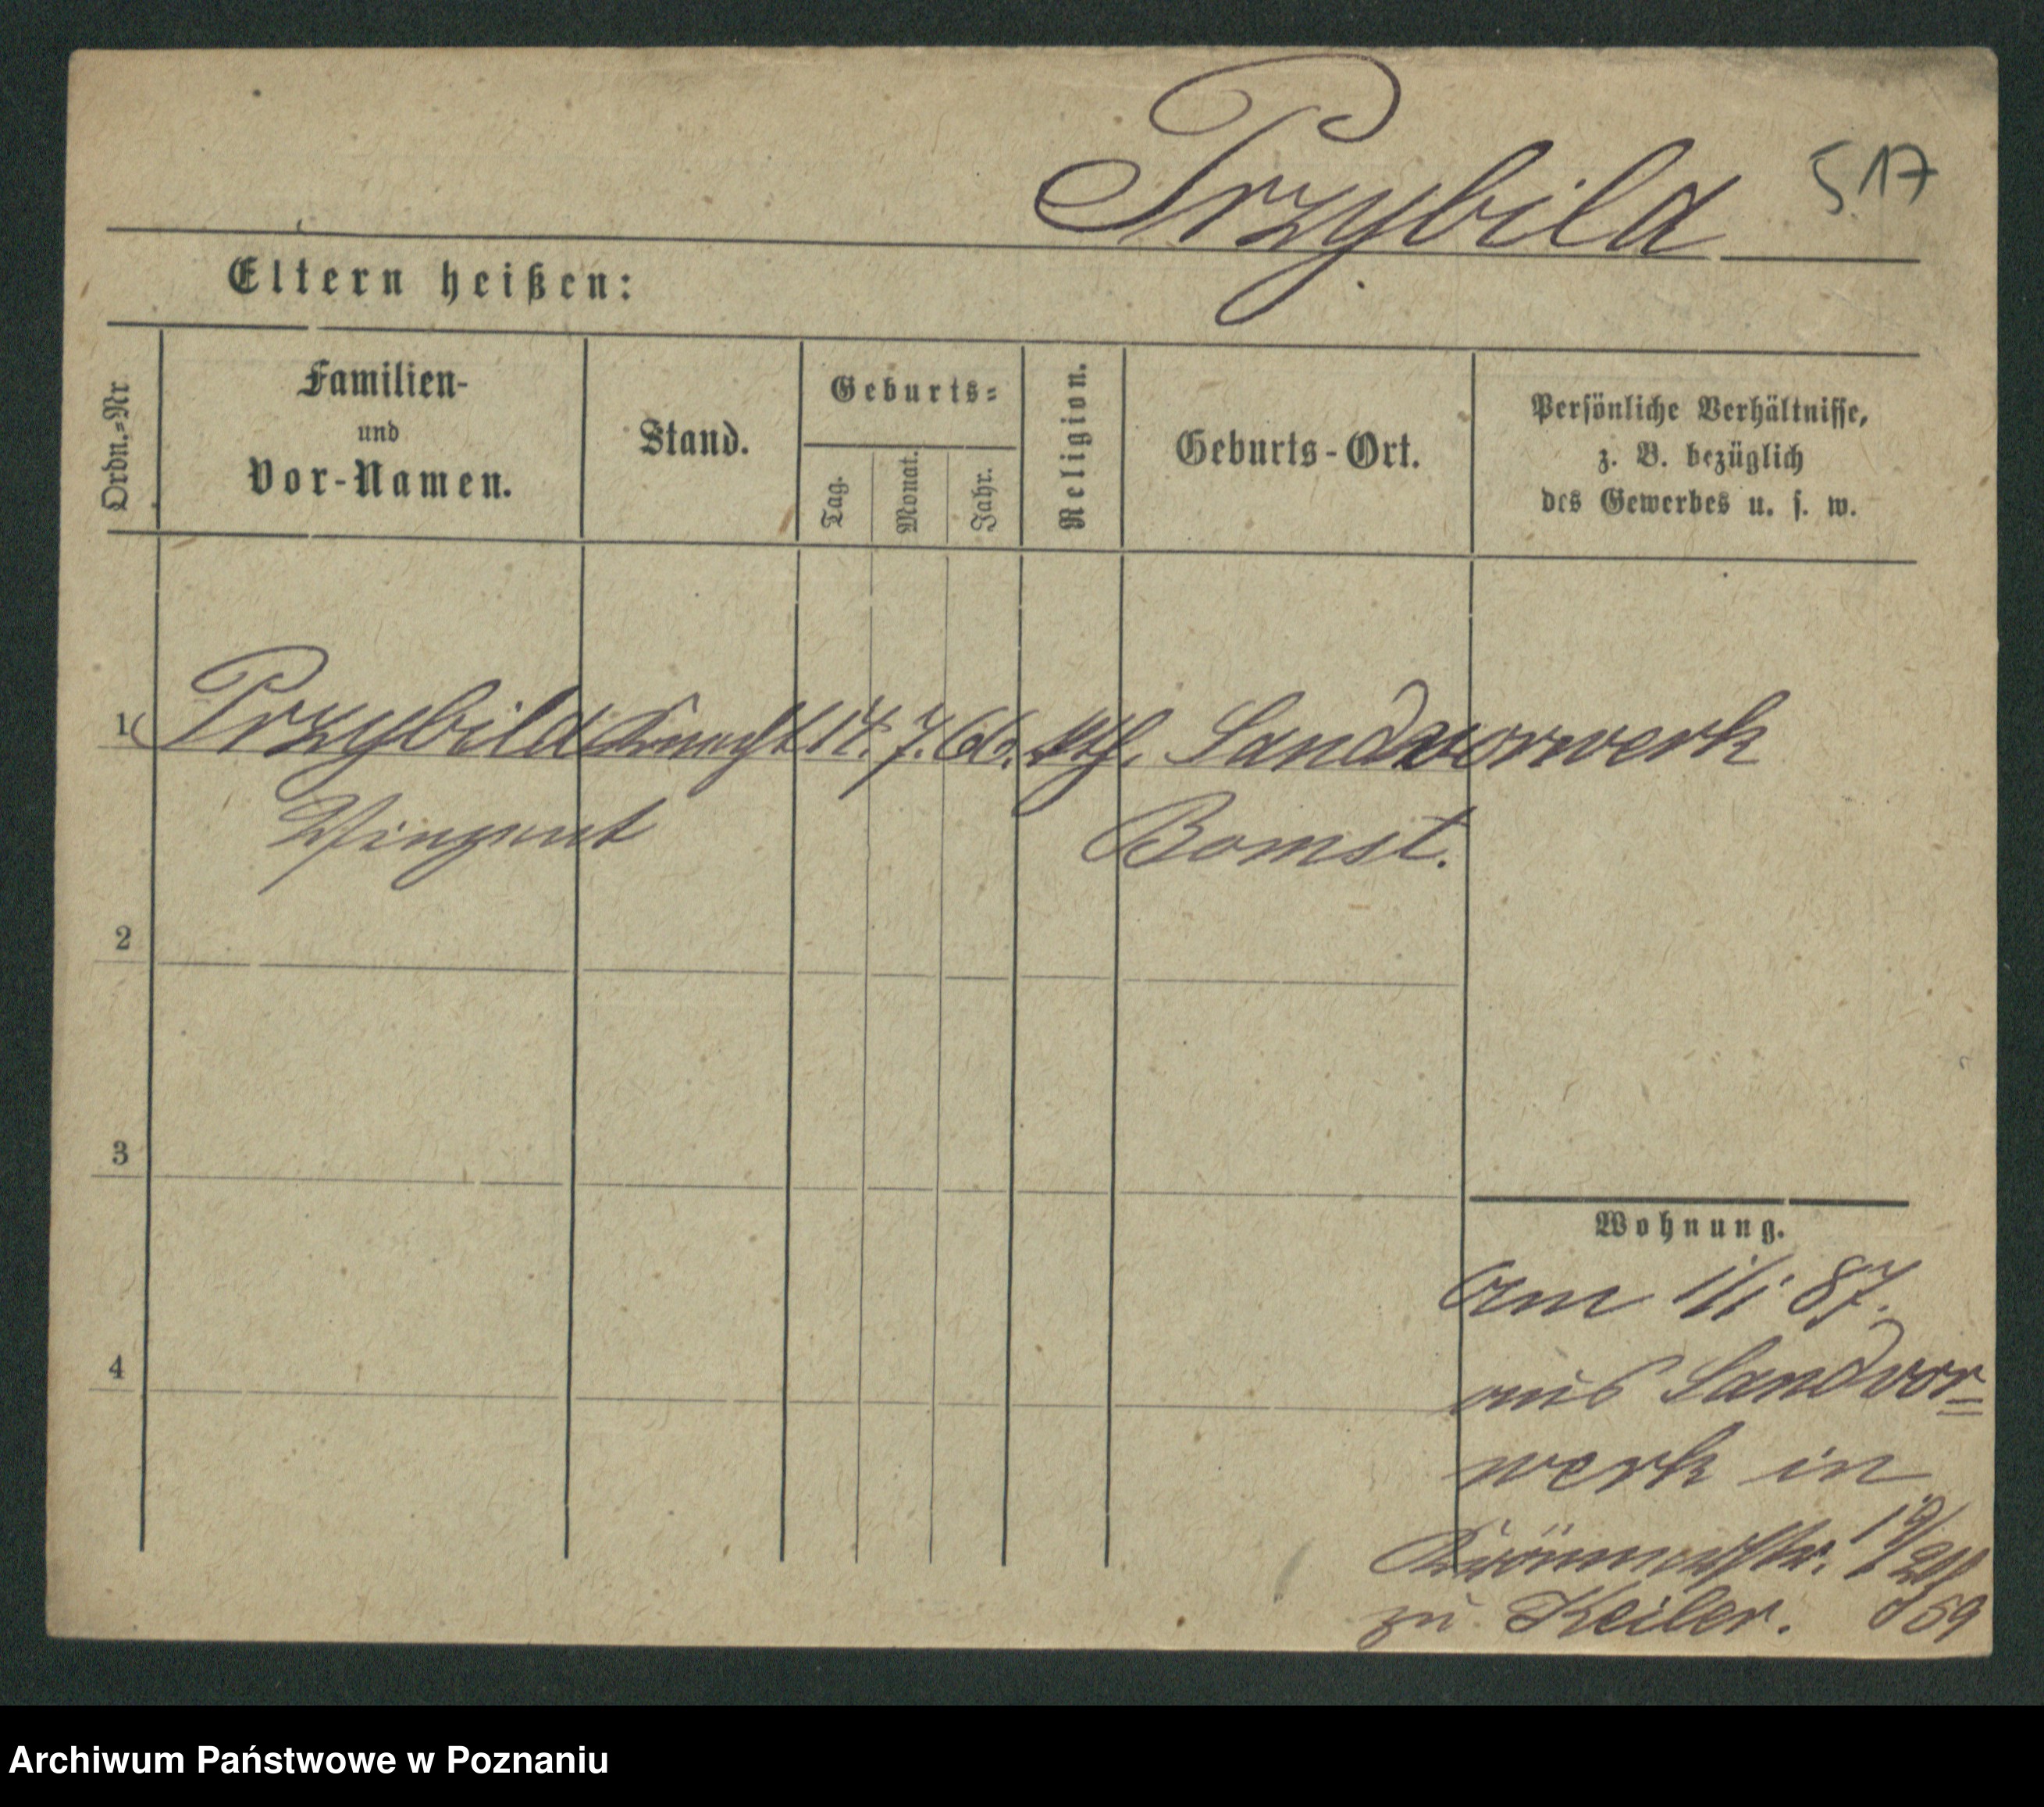 Przybild 517
Eltern heißen:
Ordn.-Nr
Familien-
und
Vor-Namen.
Stand.
Geburts-
Tag. Monat. Jahr.
Religion.
Geburts-Ort.
Persönliche Verhältnisse,
z. B. bezüglich
des Gewerbes u. s. w.
1 Przybild Knecht 14. 7. 66. kth. Landvorwerk
Vinzent Bomst.
2
3
4
Wohnung.
Am 1/1 87.
aus Landvor=
werk in
zu Keiler. 59
Archiwum Państwowe w Poznaniu